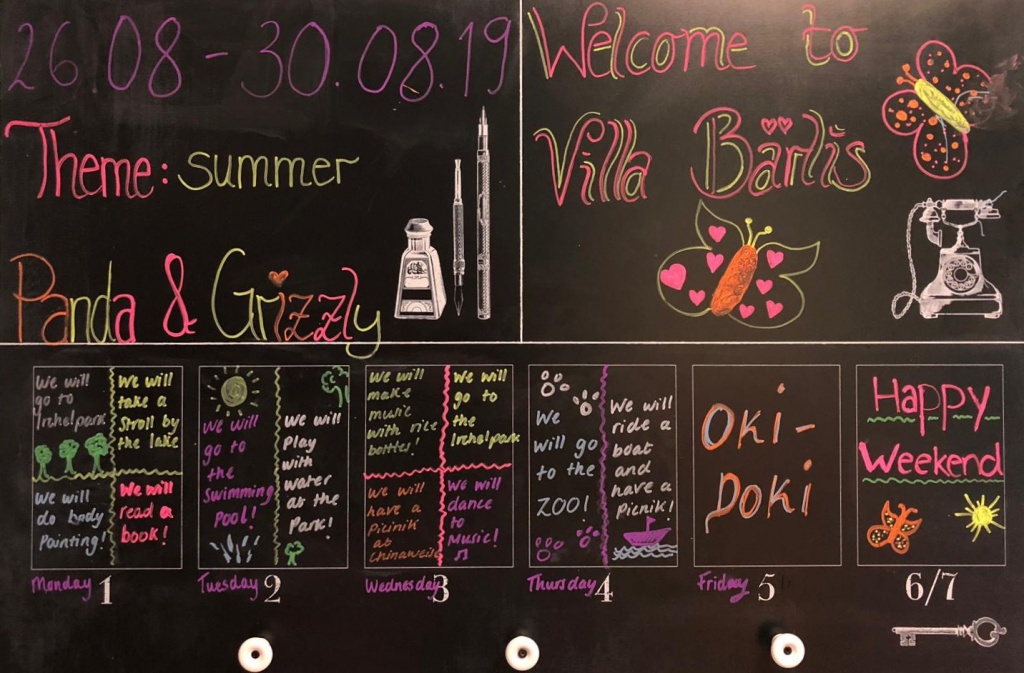 26.08 - 30.08.19
Theme: summer
Panda & Grizzly
Welcome to
Villa Bärlis
We will
go to
Irchelpark
We will
take a
stroll by
the lake
We will
do body
Painting!
We will
read a
book!
Monday 1
We will
go to
the
Swimming
Pool!
We will
Play
with
water
at the
Park!
Tuesday 2
We will
make
music
with rice
bottle!
We will
go to
the
Irchelpark
We will
have a
Picinik
at
Chinaweise
We will
dance
to
Music!
Wednesday 3
We
will go
to the
ZOO!
We will
ride a
boat
and
have a
Picnik!
Thursday 4
Oki-
Doki
Friday 5
Happy
Weekend
6/7